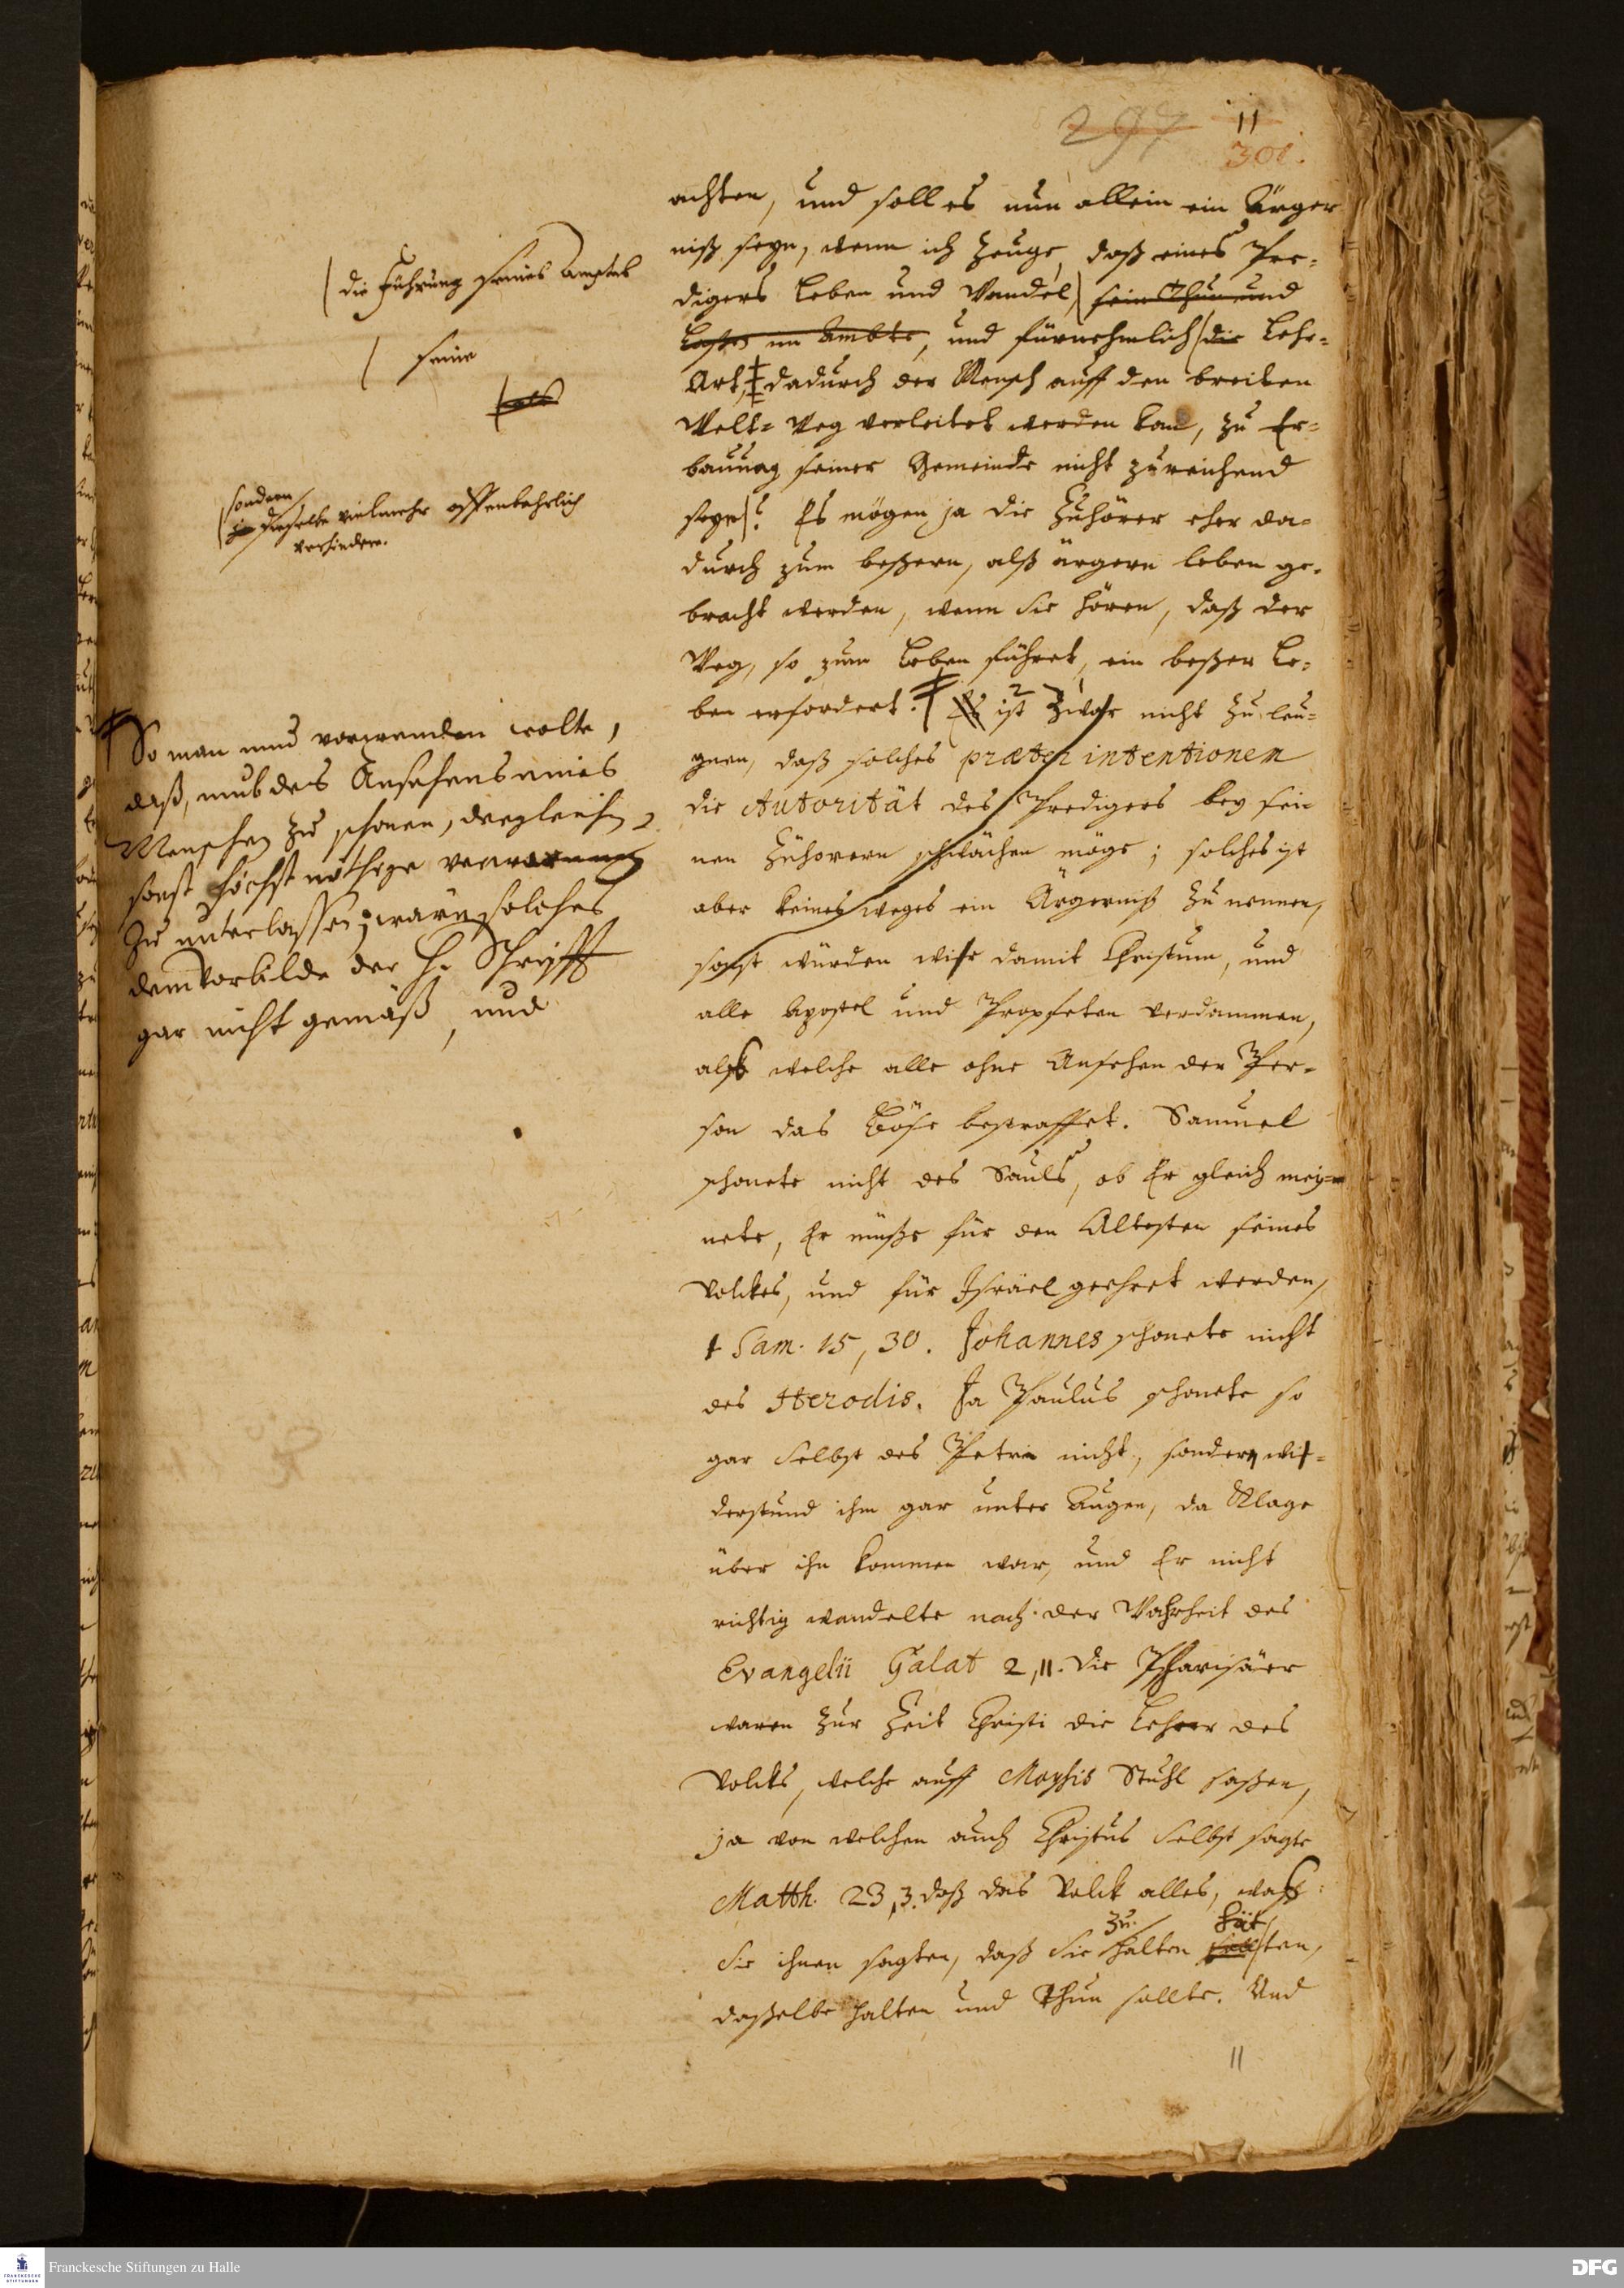 297 11
301.
achten, und soll es nun allein ein Ärger
niß seyn, wenn ich zeuge, daß eines Pre-
digers Leben und Wandel, sein Thun und
Laßen im Ambte, und fürnehmlich die Lehr-
Art, dadurch der Mensch auff den breiten
Welt-Weg verleitet werden kan, zu Er-
bauung seiner Gemeinde nicht zureichend
seyn? Es mögen ja die Zuhörer eher da-
durch zum beßern, alß ärgern leben ge-
bracht werden, wenn Sie hören, daß der
Weg, so zum Leben führet, ein beßer Le-
ben erfordert. Es ist zwar nicht zu leu-
gnen, daß solches præter intentionem
die Autorität des Predigers bey sei
nen Zuhörern schwächen möge; solches ist
aber keines weges ein Ärgerniß zu nennen,
sonst würden wir damit Christum, und
alle Apostel und Propheten verdammen,
alß welche alle ohne Ansehen der Per-
son das Böse bestraffet. Samuel
schonete nicht des Sauls, ob Er gleich mey-
nete, Er müße für den Altesten seines
Volckes, und für Israel geehret werden,
1 Sam. 15, 30. Johannes schonete nicht
des Herodis. Ja Paulus schonete so
gar selbst des Petri nicht, sondern wi-
derstund ihm gar unter Augen, da Klage
über ihn kommen war, und Er nicht
richtig wandelte nach der Wahrheit des
Evangelii Galat 2, 11. Die Pharisäer
waren zur Zeit Christi die Lehrer des
Volcks, welche auff Moysis Stuhl saßen,
ja von welchen auch Christus selbst sagte
Matth. 23, 3. daß das Volck alles, waß
zu hät
Sie ihnen sagten, daß Sie halten solten,
daßelbe halten und thun sollte. Und
11
die Führung seines Amptes
seine
als
sondern
dieselbe vielmehr offenbahrlich
verhindere.
So man nun vorwenden wolte,
daß, umb des Ansehens eines
Menschen zu schonen, dergleichen
sonst höchst nöthige
zu unterlassen wäre, solches
dem Vorbilde der H. Schrifft
gar nicht gemäß, und
Franckesche Stiftungen zu Halle
DFG